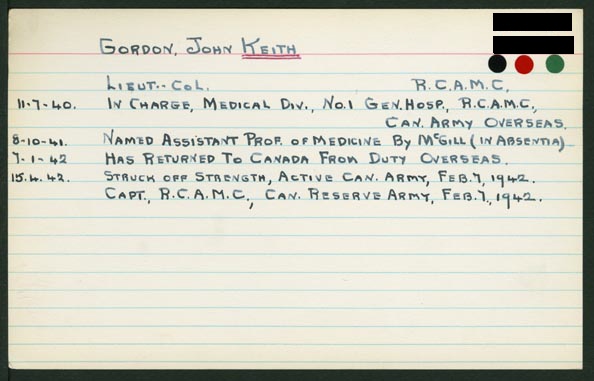 GORDON, JOHN KEITH
LIEUT.-COL. R.C.A.M.C.
11-7-40. IN CHARGE, MEDICAL DIV., NO.1 GEN. HOSP., R.C.A.M.C.,
CAN. ARMY OVERSEAS.
8-10-41. NAMED ASSISTANT PROF. OF MEDICINE BY McGILL (IN ABSENTIA)
7-1-42 HAS RETURNED TO CANADA FROM DUTY OVERSEAS.
15.4.42. STRUCK OFF STRENGTH, ACTIVE CAN. ARMY, FEB. 7, 1942.
CAPT., R.C.A.M.C., CAN. RESERVE ARMY, FEB. 7, 1942.